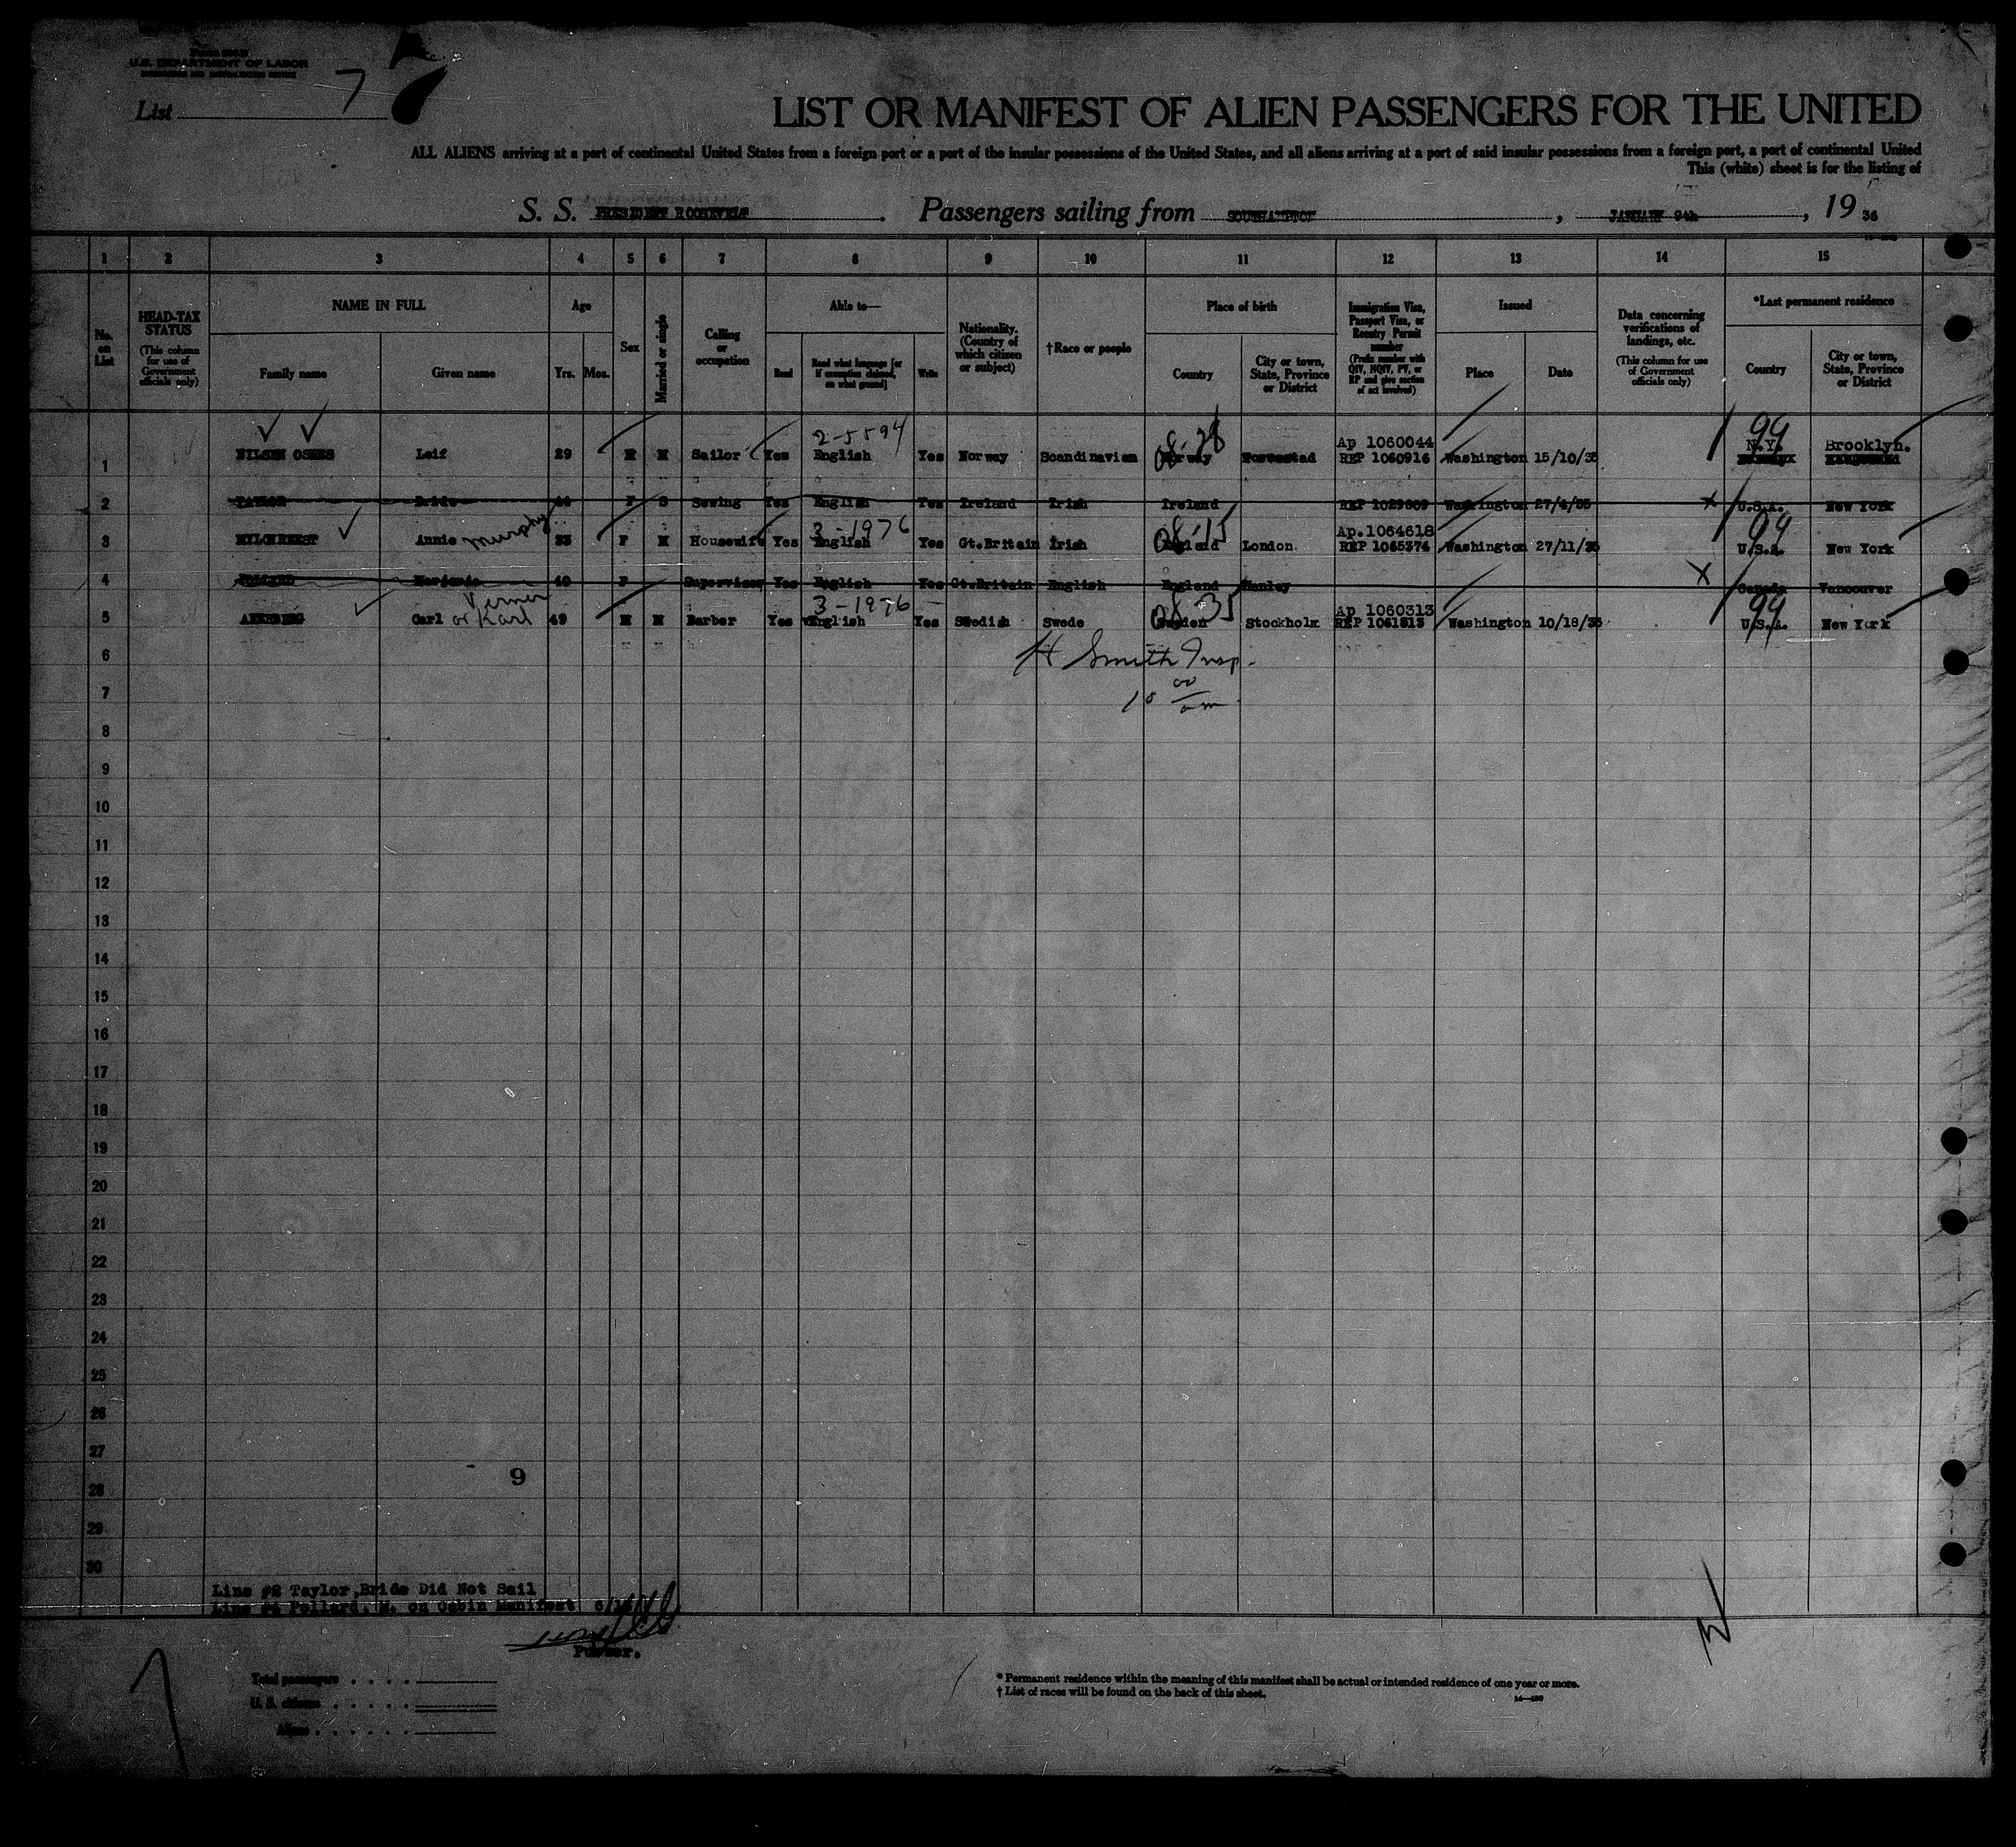 U.S. DEPARTMENT OF LABOR
List 7 7
LIST OR MANIFEST OF ALIEN PASSENGERS FOR THE UNITED
ALL ALIENS arriving at a port of continental United States from a foreign port or a port of the insular possessions of the United States, and all aliens arriving at a port of said insular possessions from a foreign port, a port of continental United
This (white) sheet is for the listing of
S. S. PRESIDENT ROOSEVELT. Passengers sailing from SOUTHAMPTON, JANUARY 9th, 19 36
1 2 3 4 5 6 7 8 9 10 11 12 13 14 15
No. on List
HEAD-TAX STATUS (This column for use of Government officials only)
NAME IN FULL Family name Given name
Age Yrs. Mos.
Sex
Married or single
Calling or occupation
Able to— Read Read what language [or if exemption claimed, on what ground] Write
Nationality. (Country of which citizen or subject)
†Race or people
Place of birth Country City or town, State, Province or District
Immigration Visa, Passport Visa, or Reentry Permit number (Prefix number with QIV, NQIV, PV, or RP and give section of act involved)
Issued Place Date
Data concerning verifications of landings, etc. (This column for use of Government officials only)
*Last permanent residence Country City or town, State, Province or District
2-5594 08-28 Ap 1060044 99 N.Y. Brooklyn.
1 NILSEN OSNES Leif 29 M M Sailor Yes English Yes Norway Scandinavian Norway REP 1060916 Washington 15/10/35
2 TAYLOR Bride F S Sewing Yes English Yes Ireland Irish Ireland REP 1029609 Washington 27/4/35 x U.S.A. New York
3-1976 08-15 Ap.1064618 99
3 MYLCHREEST Annie Murphy 33 F M Housewife Yes English Yes Gt.Britain Irish England London REP 1065374 Washington 27/11/35 U.S.A. New York
4 POLLARD Marjorie 40 F Supervisor Yes English Yes Gt.Britain English England Hanley x Canada Vancouver
Verner 3-1976 08-35 Ap 1060313 99
5 Carl or Karl 49 M M Barber Yes English Yes Swedish Swede Sweden Stockholm REP 1061313 Washington 10/18/35 U.S.A. New York
6 H Smith Insp.
7 10 00 am
8
9
10
11
12
13
14
15
16
17
18
19
20
21
22
23
24
25
26
27
9
28
29
30
Line #2 Taylor,Bride Did Not Sail
Line #4 Pollard, M. on Cabin Manifest
Purser.
Total passengers
U. S. citizens
Aliens
* Permanent residence within the meaning of this manifest shall be actual or intended residence of one year or more.
† List of races will be found on the back of this sheet.